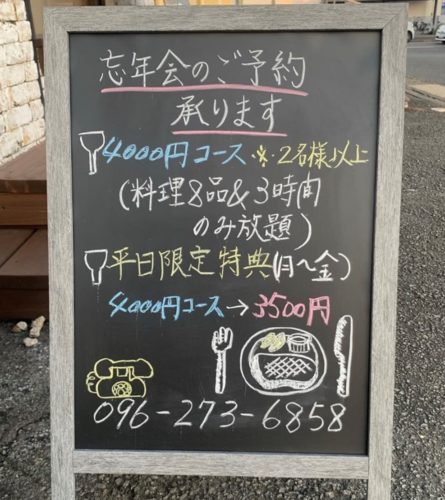 忘年会のご予約
承ります
4000円コース ※2名様以上
(料理8品&3時間
のみ放題)
平日限定特典(月~金)
4000円コース→3500円
096-273-6858